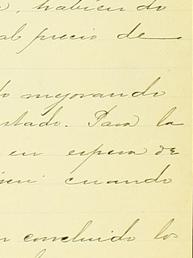 habiendo
al precio de
mejorando
stado. Para la
en espera de
cuando
concluido los